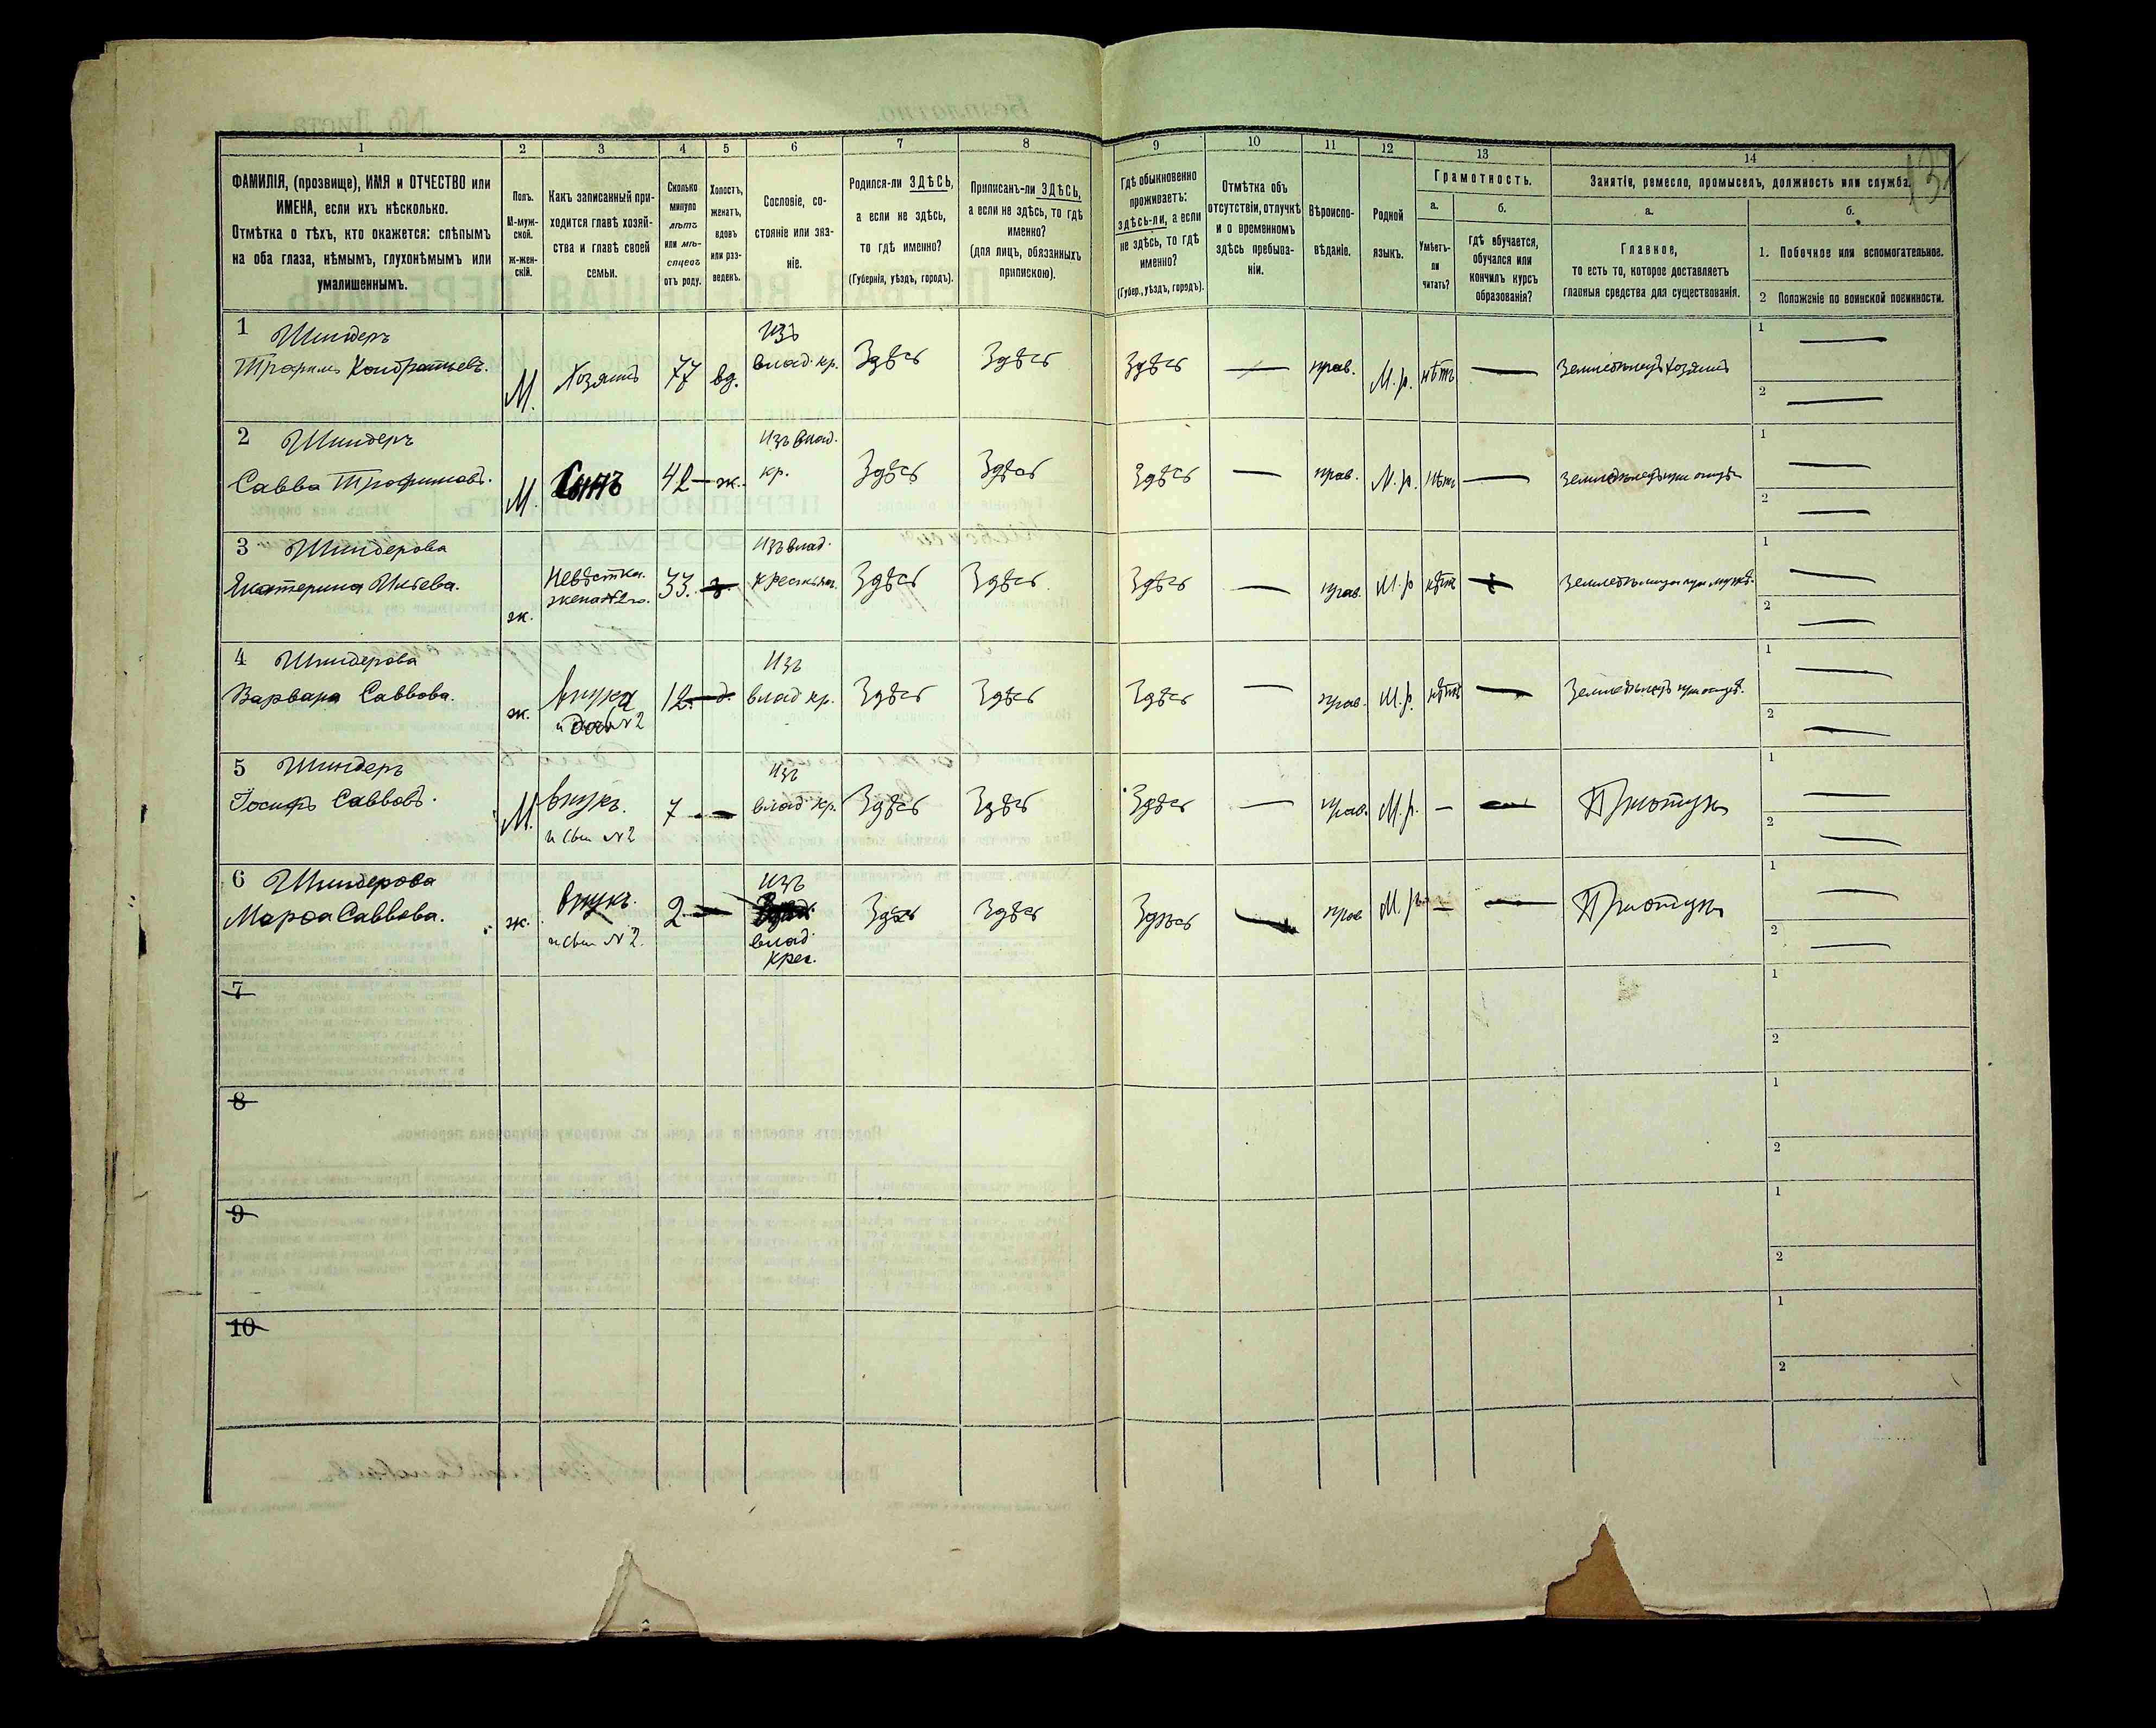 1 2 3 4 5 6 7 8 9 10 11 12 13 14
ФАМИЛІЯ, (прозвище), ИМЯ и ОТЧЕСТВО или
ИМЕНА, если ихъ нѣсколько.
Отмѣтка о тѣхъ, кто окажется: слѣпымъ
на оба глаза, нѣмымъ, глухонѣмымъ или
умалишеннымъ.
Полъ.
М-муж-
ской.
Ж-жен-
скій.
Какъ записанный при-
ходится главѣ хозяй-
ства и главѣ своей
семьи.
Сколько
минуло
лѣтъ
или мѣ-
сяцевъ
отъ роду.
Холостъ,
женатъ,
вдовъ
или раз-
веденъ.
Сословіе, со-
стояніе или зва-
ніе.
Родился-ли ЗДѢСЬ,
а если не здѣсь,
то гдѣ именно?
(Губернія, уѣздъ, городъ).
Приписанъ-ли ЗДѢСЬ,
а если не здѣсь, то гдѣ
именно?
(для лицъ, обязанныхъ
припискою).
Гдѣ обыкновенно
проживаетъ:
здѣсь-ли, а если
не здѣсь, то гдѣ
именно?
(Губер., уѣздъ, городъ).
Отмѣтка объ
отсутствіи, отлучкѣ
и о временномъ
здѣсь пребыва-
ніи.
Вѣроиспо-
вѣданіе.
Родной
языкъ.
Грамотность.
а.
Умѣетъ-
ли
читать?
б.
Гдѣ обучается,
обучался или
кончилъ курсъ
образованія?
Занятіе, ремесло, промыселъ, должность или служба.
а.
Главное,
то есть то, которое доставляетъ
главныя средства для существованія.
б.
1. Побочное или вспомогательное.
2 Положеніе по воинской повинности.
1 Шиндеръ
Трофимъ Кондратьевъ.
М. Хозяинъ 77 вд.
Изъ
влад. кр.
Здѣсь Здѣсь Здѣсь — прав. М.р. нѣтъ — Земледѣлецъ хозяинъ
1 —
2 —
2 Шиндеръ
Савва Трофимовъ.
М. Сынъ 42 ж.
Изъ влад.
кр.
Здѣсь Здѣсь Здѣсь — прав. М.р. нѣтъ — Земледѣлецъ при отцѣ
1 —
2 —
3 Шиндерова
Екатерина Ильева.
ж. Невѣстка.
жена №2го.
33. з.
Изъ влад.
крестьян.
Здѣсь Здѣсь Здѣсь — прав. М.р. нѣтъ — Земледѣлица при мужѣ.
1 —
2 —
4 Шиндерова
Варвара Саввова.
ж. внука
и дочь №2
12. д.
Изъ
влад кр.
Здѣсь Здѣсь Здѣсь — прав. М.р. нѣтъ — Земледѣлецъ при отцѣ.
1 —
2 —
5 Шиндеръ
Іосифъ Саввовъ.
М. внукъ.
и сын №2
7 —
Изъ
влад. кр.
Здѣсь Здѣсь Здѣсь — прав. М.р. — —
1 —
2 —
6 Шиндерова
Марфа Саввова.
ж. внукъ.
и сын №2.
2 —
Изъ
влад.
крес.
Здѣсь Здѣсь Здѣсь — прав М.р. — —
1 —
2 —
7
1
2
8
1
2
9
1
2
10
1
2